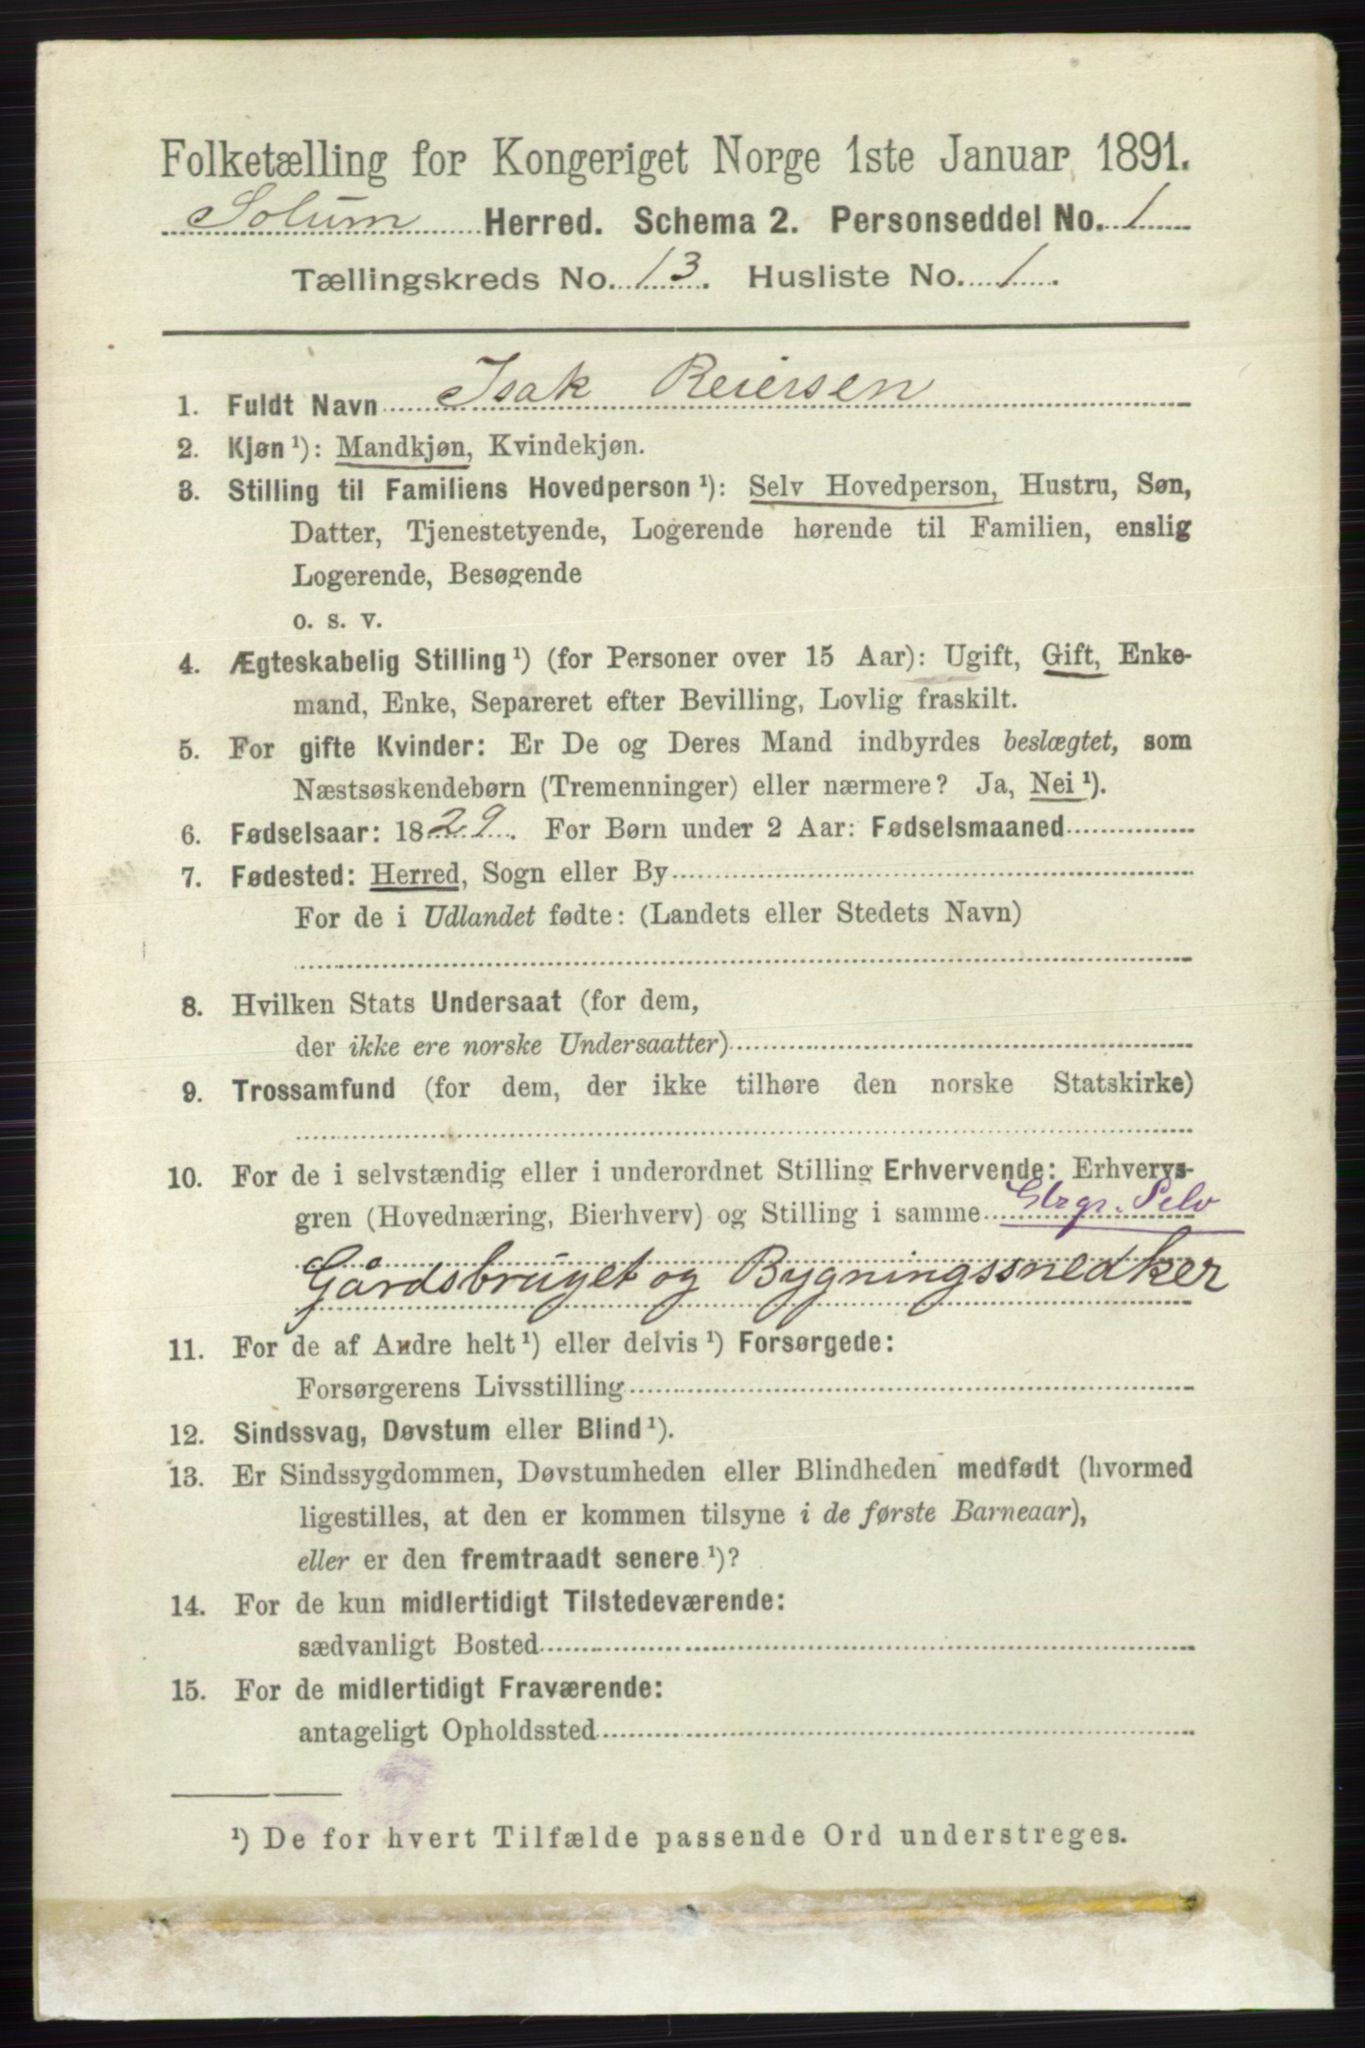 Folketælling for Kongeriget Norge 1ste Januar 1891.
Solum Herred. Schema 2. Personseddel No. 1
Tællingskreds No. 13. Husliste No. 1.
1. Fuldt Navn Isak Reiersen
2. Kjøn ¹): Mandkjøn, Kvindekjøn.
3. Stilling til Familiens Hovedperson ¹): Selv Hovedperson, Hustru, Søn,
Datter, Tjenestetyende, Logerende hørende til Familien, enslig
Logerende, Besøgende
o. s. v.
4. Ægteskabelig Stilling ¹) (for Personer over 15 Aar): Ugift, Gift, Enke-
mand, Enke, Separeret efter Bevilling, Lovlig fraskilt.
5. For gifte Kvinder: Er De og Deres Mand indbyrdes beslægtet, som
Næstsøskendebørn (Tremenninger) eller nærmere? Ja, Nei ¹).
6. Fødselsaar: 1829. For Børn under 2 Aar: Fødselsmaaned
7. Fødested: Herred, Sogn eller By
For de i Udlandet fødte: (Landets eller Stedets Navn)
8. Hvilken Stats Undersaat (for dem,
der ikke ere norske Undersaatter)
9. Trossamfund (for dem, der ikke tilhøre den norske Statskirke)
10. For de i selvstændig eller i underordnet Stilling Erhvervende: Erhvervs-
gren (Hovednæring, Bierhverv) og Stilling i samme Selv
Gårdsbruget og Bygningssnedker
11. For de af Andre helt ¹) eller delvis ¹) Forsørgede:
Forsørgerens Livsstilling
12. Sindssvag, Døvstum eller Blind ¹).
13. Er Sindssygdommen, Døvstumheden eller Blindheden medfødt (hvormed
ligestilles, at den er kommen tilsyne i de første Barneaar),
eller er den fremtraadt senere ¹)?
14. For de kun midlertidigt Tilstedeværende:
sædvanligt Bosted
15. For de midlertidigt Fraværende:
antageligt Opholdssted
¹) De for hvert Tilfælde passende Ord understreges.